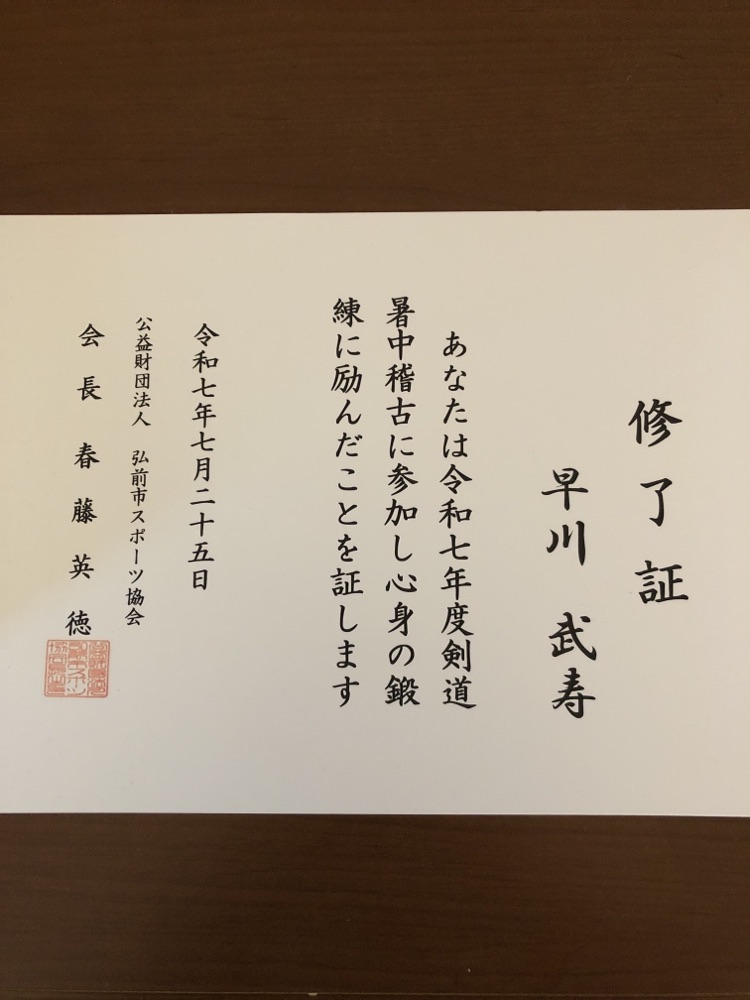 修了証
早川 武寿
あなたは令和七年度剣道
暑中稽古に参加し心身の鍛
練に励んだことを証します
令和七年七月二十五日
公益財団法人 弘前市スポーツ協会
会長 春藤英徳